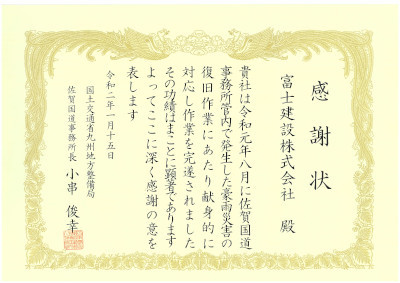 感謝状
富士建設株式会社 殿
貴社は令和元年八月に佐賀国道
事務所管内で発生した豪雨災害の
復旧作業にあたり献身的に
対応し作業を完遂されました
その功績はまことに顕著であります
よってここに深く感謝の意を
表します
令和二年一月十五日
国土交通省九州地方整備局
佐賀国道事務所長 小串 俊幸